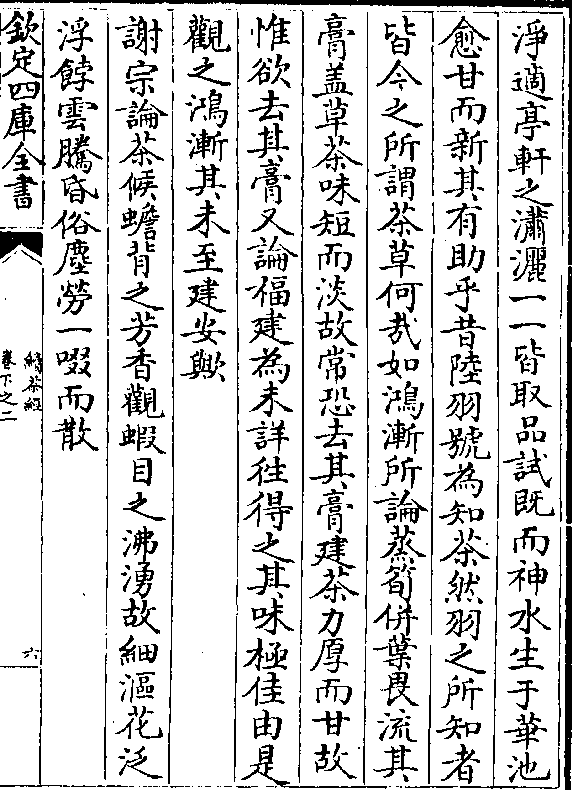 淨適亭軒之瀟灑一一皆取品試既而神水生于華池
愈甘而新其有助乎昔陸羽號為知茶然羽之所知者
皆今之所謂茶草何哉如鴻漸所論蒸筍併葉畏流其
膏盖草茶味短而淡故常恐去其膏建茶力厚而甘故
惟欲去其膏又論福建為未詳往得之其味極佳由是
觀之鴻漸其未至建安歟
謝宗論茶候蟾背之芳香觀蝦目之沸湧故細漚花泛
浮餑雲騰昏俗塵勞一啜而散
欽定四庫全書
續茶經
卷下之二
六